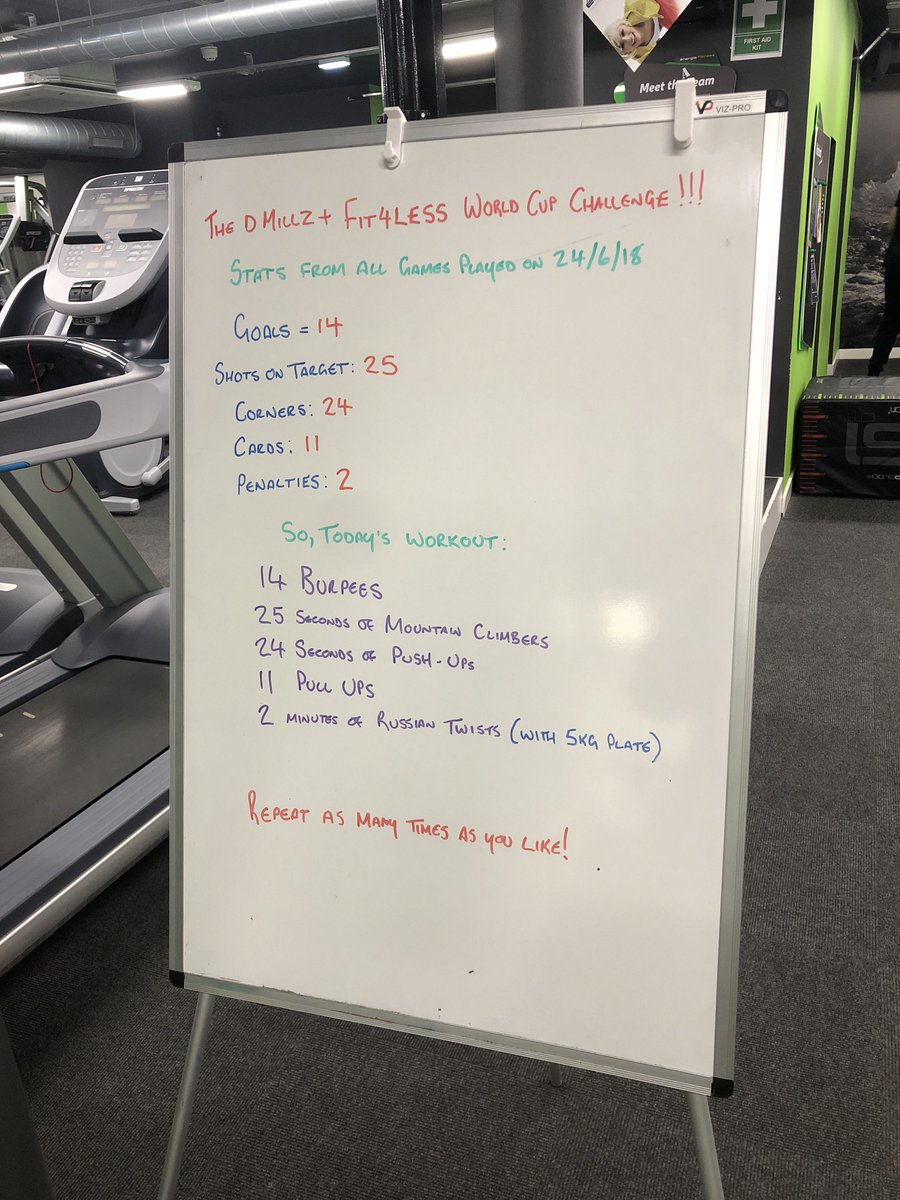 FIRST AID
KIT
Meet the team
VIZ-PRO
THE D MILLZ + FIT4LESS WORLD CUP CHALLENGE!!!
STATS FROM ALL GAMES PLAYED ON 24/6/18
GOALS = 14
SHOTS ON TARGET: 25
CORNERS: 24
CARDS: 11
PENALTIES: 2
SO, TODAY'S WORKOUT:
14 BURPEES
25 SECONDS OF MOUNTAIN CLIMBERS
24 SECONDS OF PUSH-UPS
11 PULL UPS
2 MINUTES OF RUSSIAN TWISTS (WITH 5KG PLATE)
REPEAT AS MANY TIMES AS YOU LIKE!